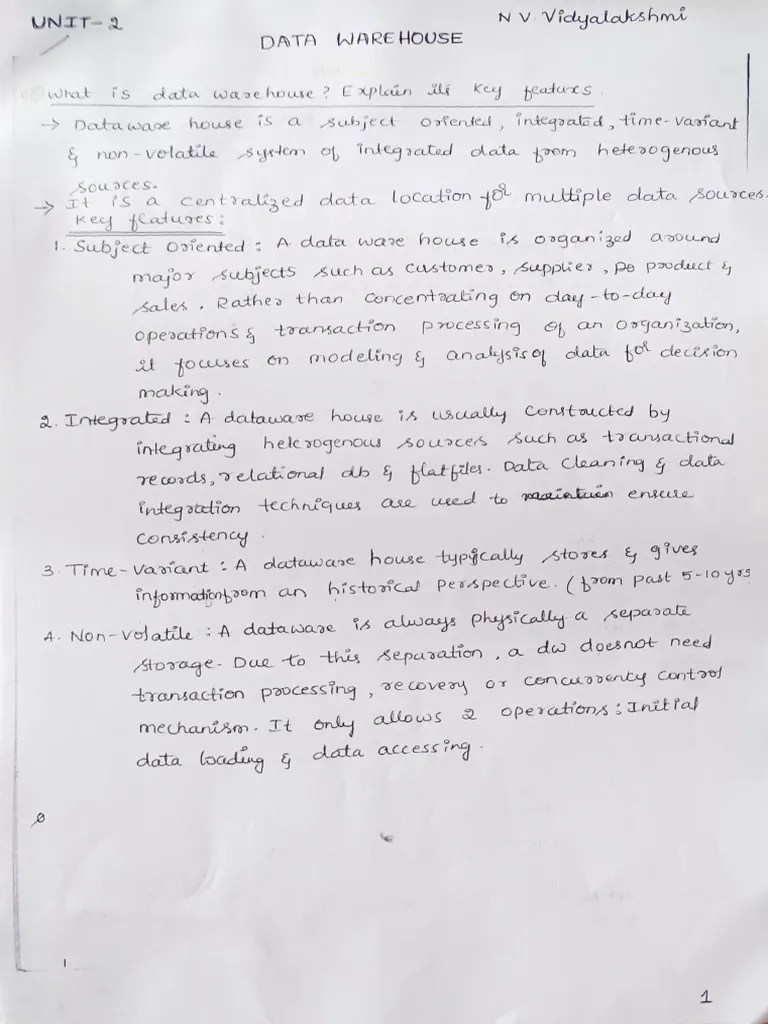 UNIT-2
N V. Vidyalakshmi
DATA WAREHOUSE
What is data warehouse? Explain its key features.
→ Dataware house is a subject oriented, integrated, time-variant
& non-volatile system of integrated data from heterogenous
sources.
→ It is a centralized data location for multiple data sources.
Key features:
1. Subject Oriented: A data ware house is organized around
major subjects such as customer, supplier, po product &
sales. Rather than concentrating on day-to-day
operations & transaction processing of an organization,
it focuses on modeling & analysis of data for decision
making.
2. Integrated: A dataware house is usually constructed by
integrating heterogenous sources such as transactional
records, relational db & flatfiles. Data cleaning & data
integration techniques are used to maintain ensure
consistency.
3. Time-Variant: A dataware house typically stores & gives
information from an historical perspective. (from past 5-10 yrs
4. Non-Volatile: A dataware is always physically a separate
storage. Due to this separation, a dw doesnot need
transaction processing, recovery or concurrency control
mechanism. It only allows 2 operations: Initial
data loading & data accessing.
1